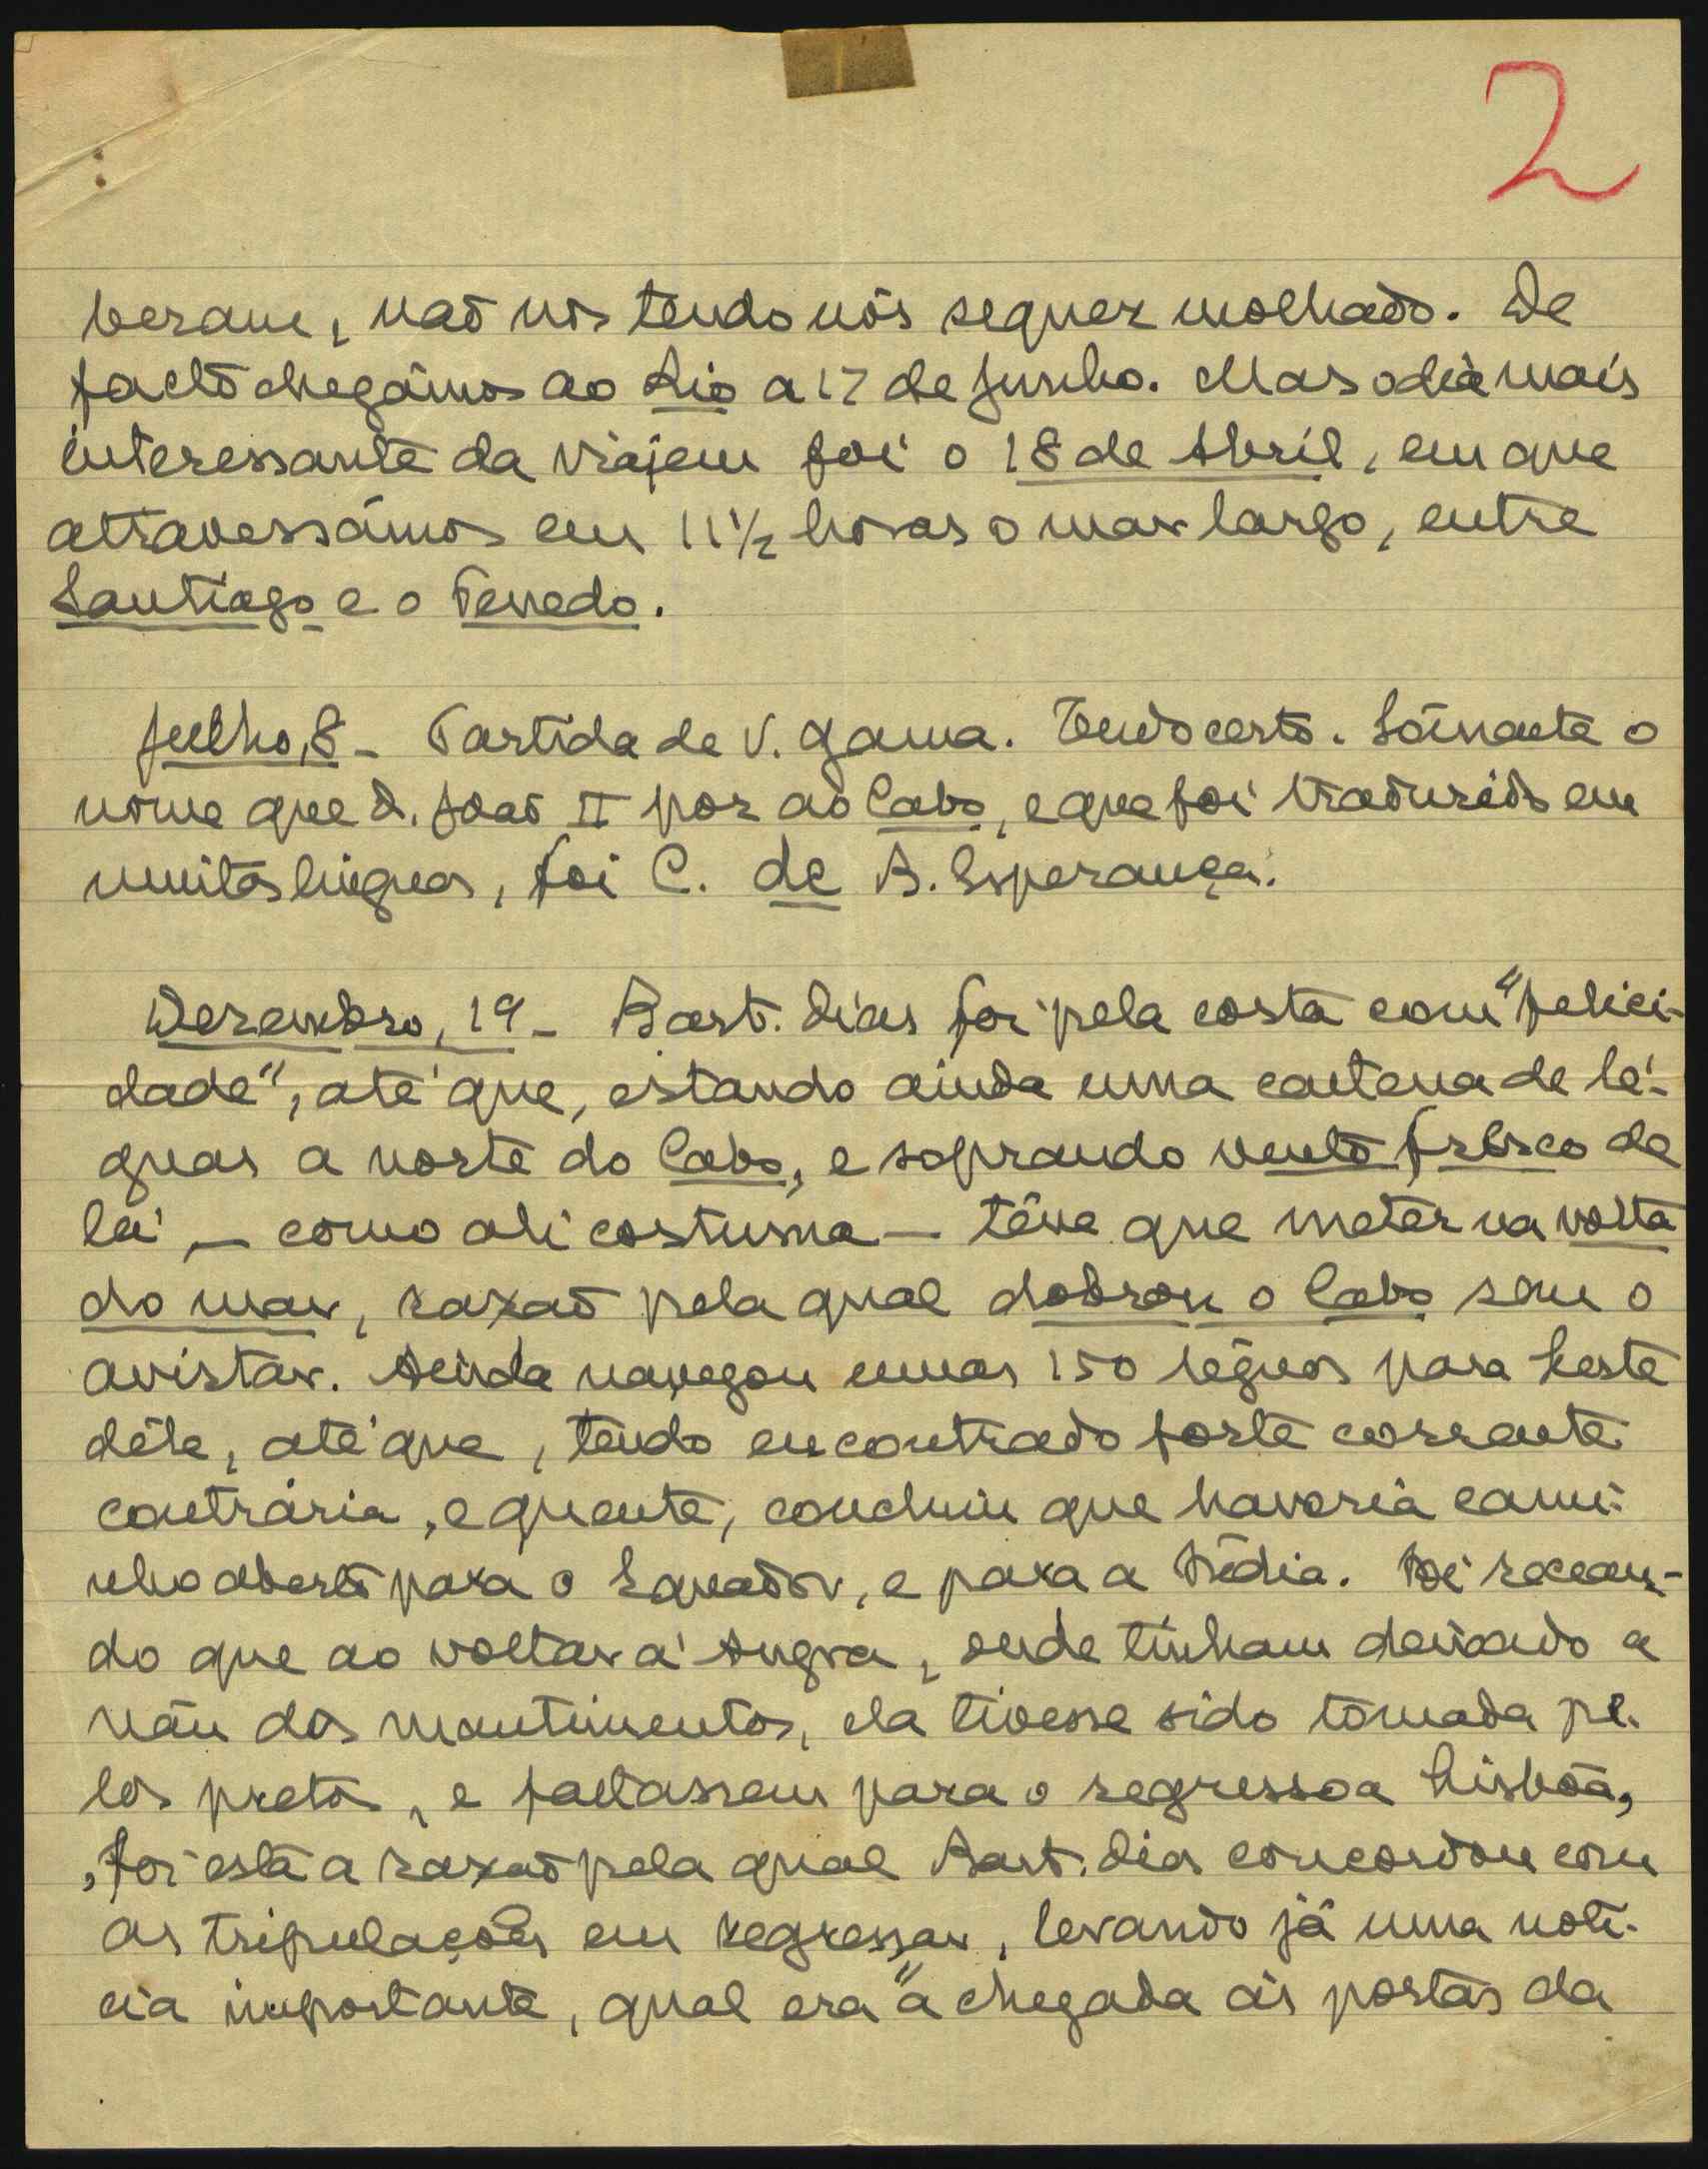 2
beram, não nos tendo nós sequer molhado. De
facto chegámos ao Rio a 17 de Junho. Mas o dia mais
interessante da viajem foi o 18 de Abril, em que
atravessámos em 11½ horas o mar largo, entre
Santiago e o Penedo.
Julho, 8 - Partida de V. Gama. Tudo certo. Sòmente o
nome que D. João II poz ao Cabo, e que foi traduzido em
muitas linguas, foi C. de B. Esperança.
Dezembro, 19 - Bart. Dias foi pela costa com "felici-
dade", até que, estando ainda uma centena de lé-
guas a norte do Cabo, e soprando vento fresco de
lá, — como ali costuma — têve que meter na volta
do mar, razão pela qual dobrou o Cabo sem o
avistar. Ainda navegou umas 150 léguas para Leste
dêle, até que, tendo encontrado forte corrente
contrária, e quente, concluiu que haveria cami-
nho aberto para o Equador, e para a Índia. Foi recean-
do que ao voltar á Angra, onde tinham deixado a
náu dos mantimentos, ela tivesse sido tomada pe-
los pretos, e faltassem para o regresso a Lisbôa,
, foi esta a razão pela qual Bart. Dias concordou com
as tripulações em regressar, levando já uma noti-
cia importante, qual era "a chegada ás portas da